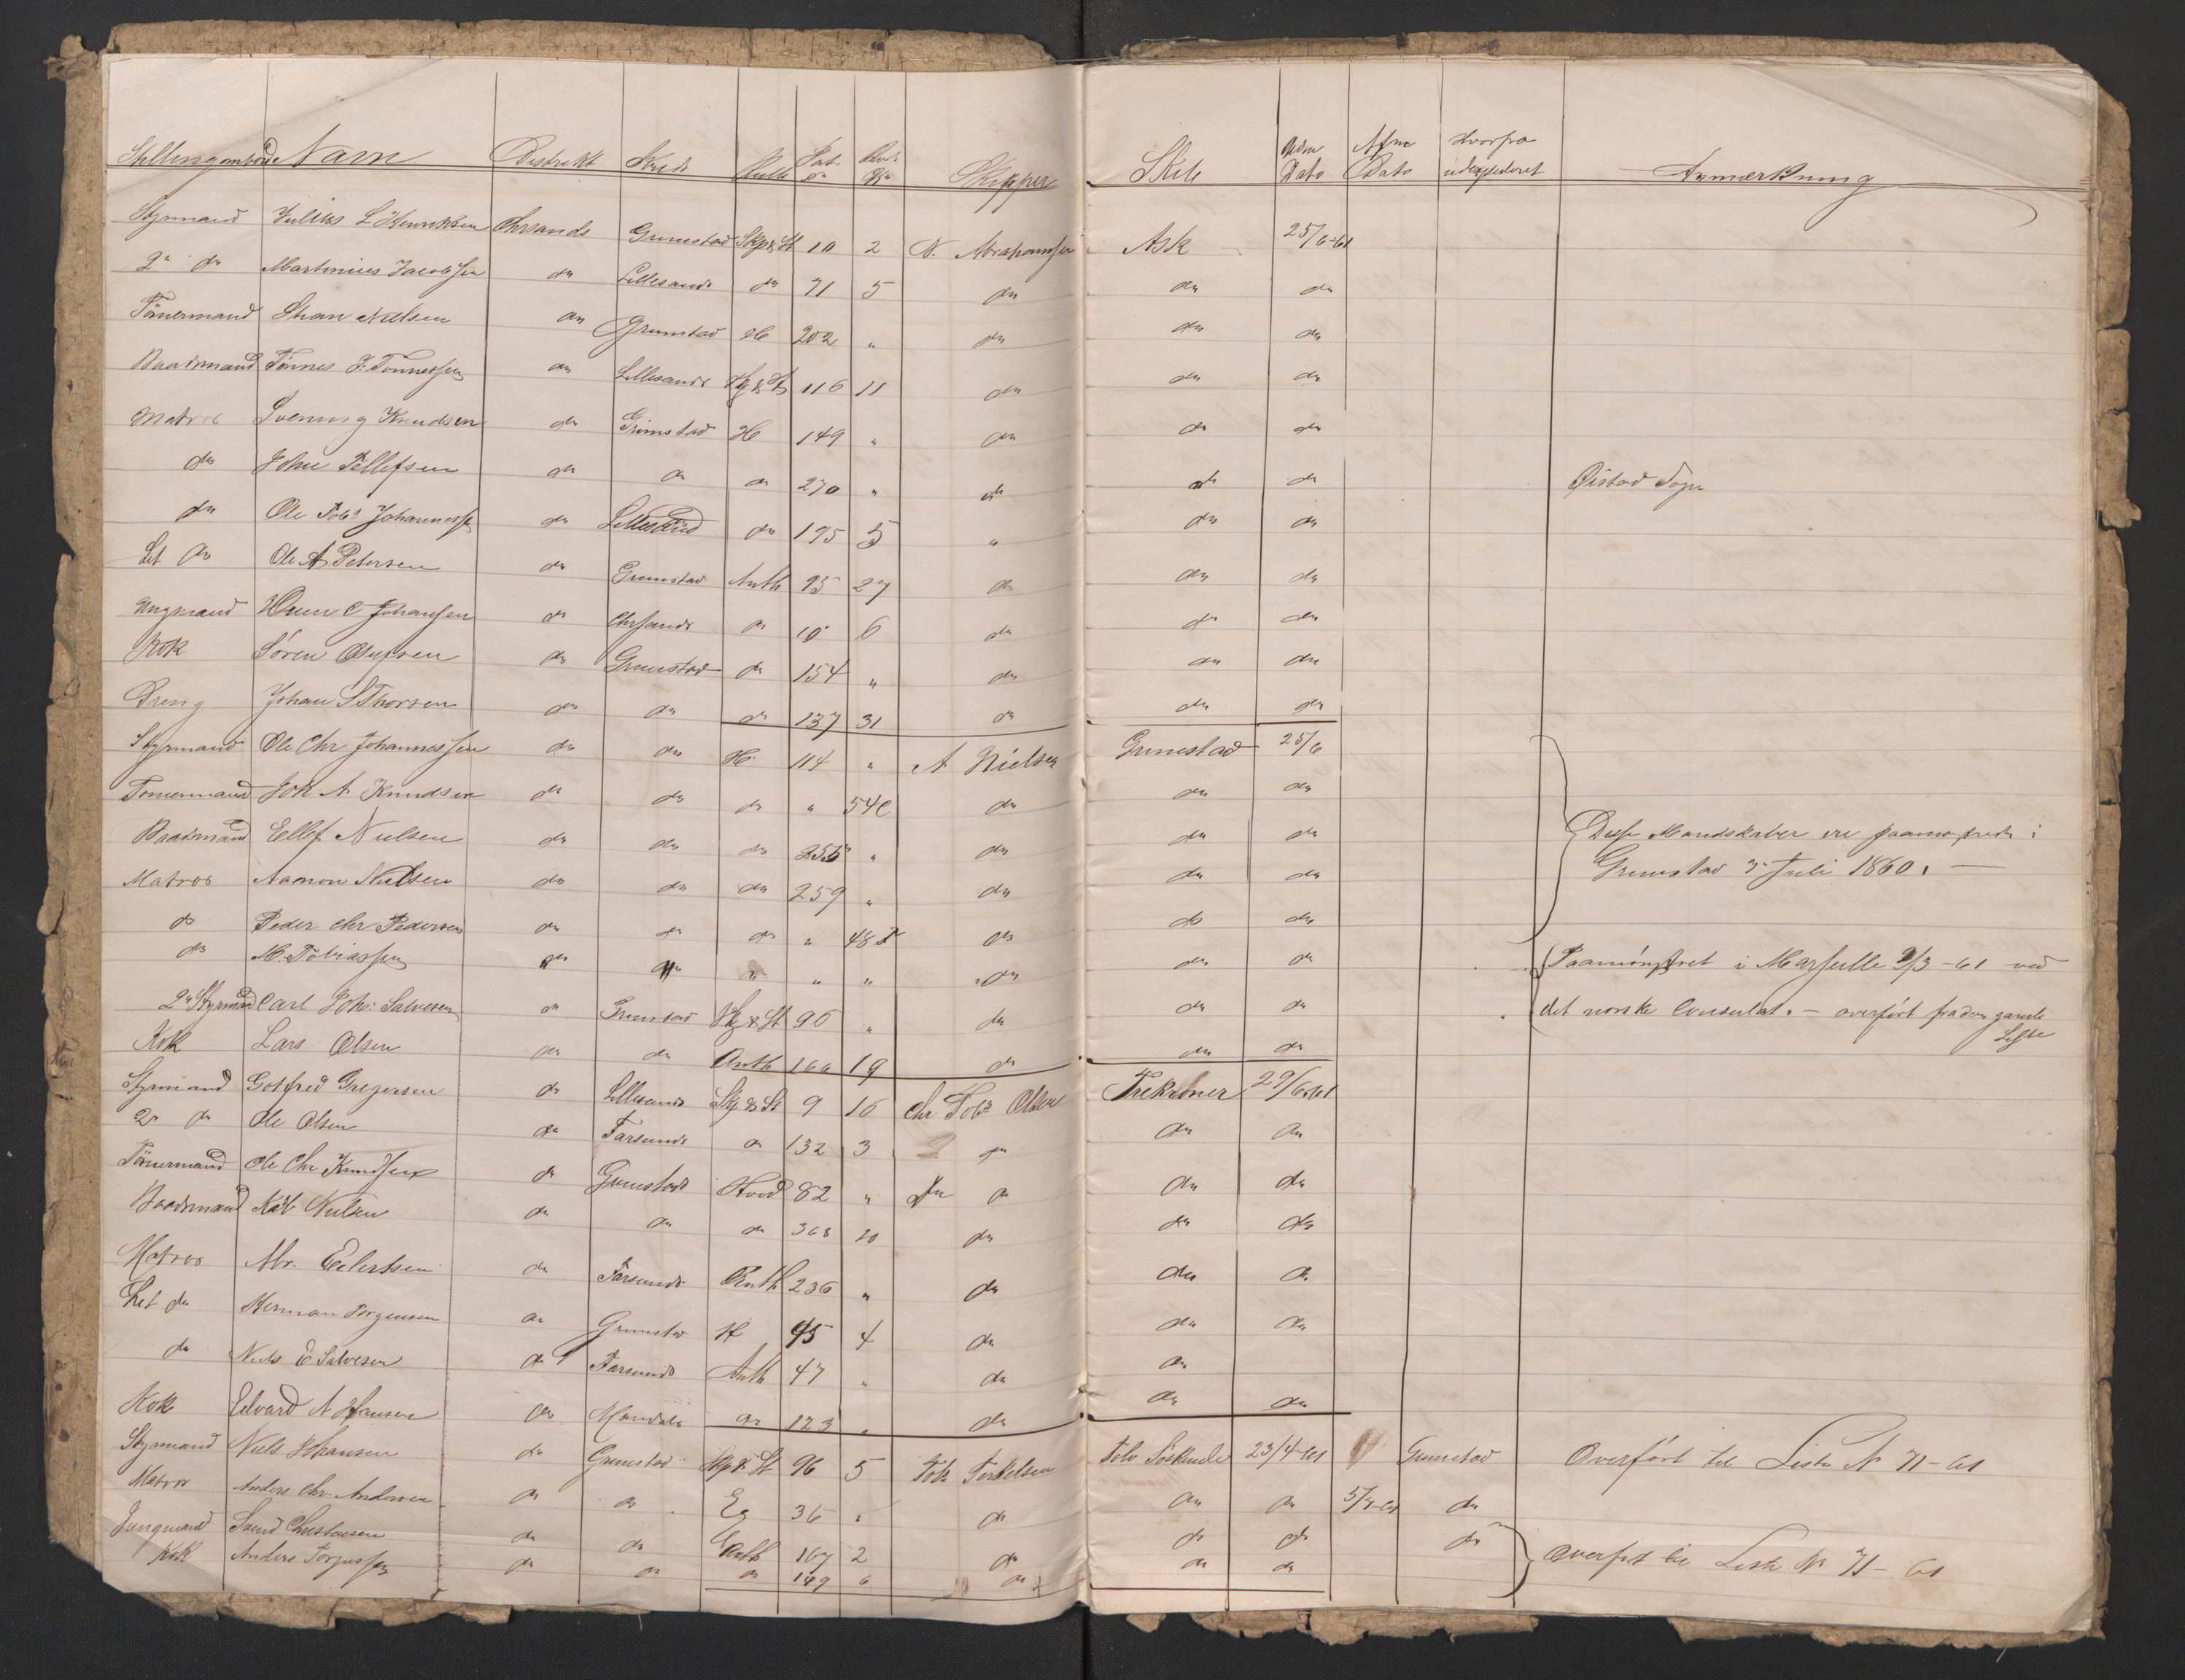 Stilling ombord Navn Distrikt Kreds Rulle Pat. No Rul. No Skipper Skib Udm Dato Afm Dato Hvorfra udexpederet Anmærkning
Styrmand Julius L Henriksen Chrsands Grimstad Skp & St 10 2 N. Abrahamsen Ask 25/6-61
2n do Martinius Jacobsen do Lillesand do 71 5 do do do
Tömermand Nielsen do Grimstad H 202 " do do do
Baadsmand Tönnes J. Tönnessen do Lillesand Sk & St 116 11 do do do
Matros Svenning Knudsen do Grimstad H 149 " do do do
do John Tellefsen do do do 270 " do do do Øistad Sogn
do Ole Tobs Johannessen do Lillesand do 195 5 " do do
Let do Ole A Petersen do Grimstad Anth 95 27 do do do
Ungmand C Johansen do Chrsand do 10 6 do do do
Kok Sören Olufsen do Grimstad do 154 " do do do
Dreng Johan S Thorsen do do do 137 31 do do do
Styrmand Ole Chr Johannessen do do H. 114 " A Nielsen Grimstad 25/6
Tömermand Joh A. Knudsen do do do " 54 do do do
Baadsmand Ellef Nielsen do do do 255 " do do do Disse Mandskaber ere paamønstrede i
Matros Aamon Nielsen do do do 259 " do do do Grimstad Juli 1860. —
do Peder Chr Pedersen do do do " 48 do do do
do M. Tobiassen do " " " do do do Paamönstret i Marseille /3-61 ved
2n Styrmand Carl Joh: Salvesen do Grimstad Sk & St 96 " do do do det norske Consulat. — overfört fra
Liste
Kok Lars Olsen do do Anth 19 do do do
Styrmand Gotfred Gregersen do Lillesand Sk & St 9 16 Chr Tobs Olsen Trekroner 29/6-61
2n do Ole Olsen do Farsund do 132 3 do do do
Tömermand Ole Chr Knudsen do Grimstad Hoved 82 " do do do
Baadsmand Nielsen do do do 368 20 do do do
Matros Abr. Eilertsen do Farsund Anth 236 " do do do
Let do Herman Jørgensen do Grimstad H 95 4 do do do
do Niels E Salvesen do Farsund Anth 47 " do do
Kok Edvard A Hansen do Mandals do 123 " do do do
Styrmand Niels Johansen do Grimstad Skp & St 96 5 Tob Torkelsen Tolv Söskende 23/4-61 Grimstad Overfört til Liste No 71-61
Matros Anders Chr. Andersen do do Eg 36 " do do do 5/7-61 do
Jungmand Svend Christensen do do Anth 167 2 do do do do Overfört til Liste No 71-61
Kok Anders Torjussen do do do 149 6 do do do